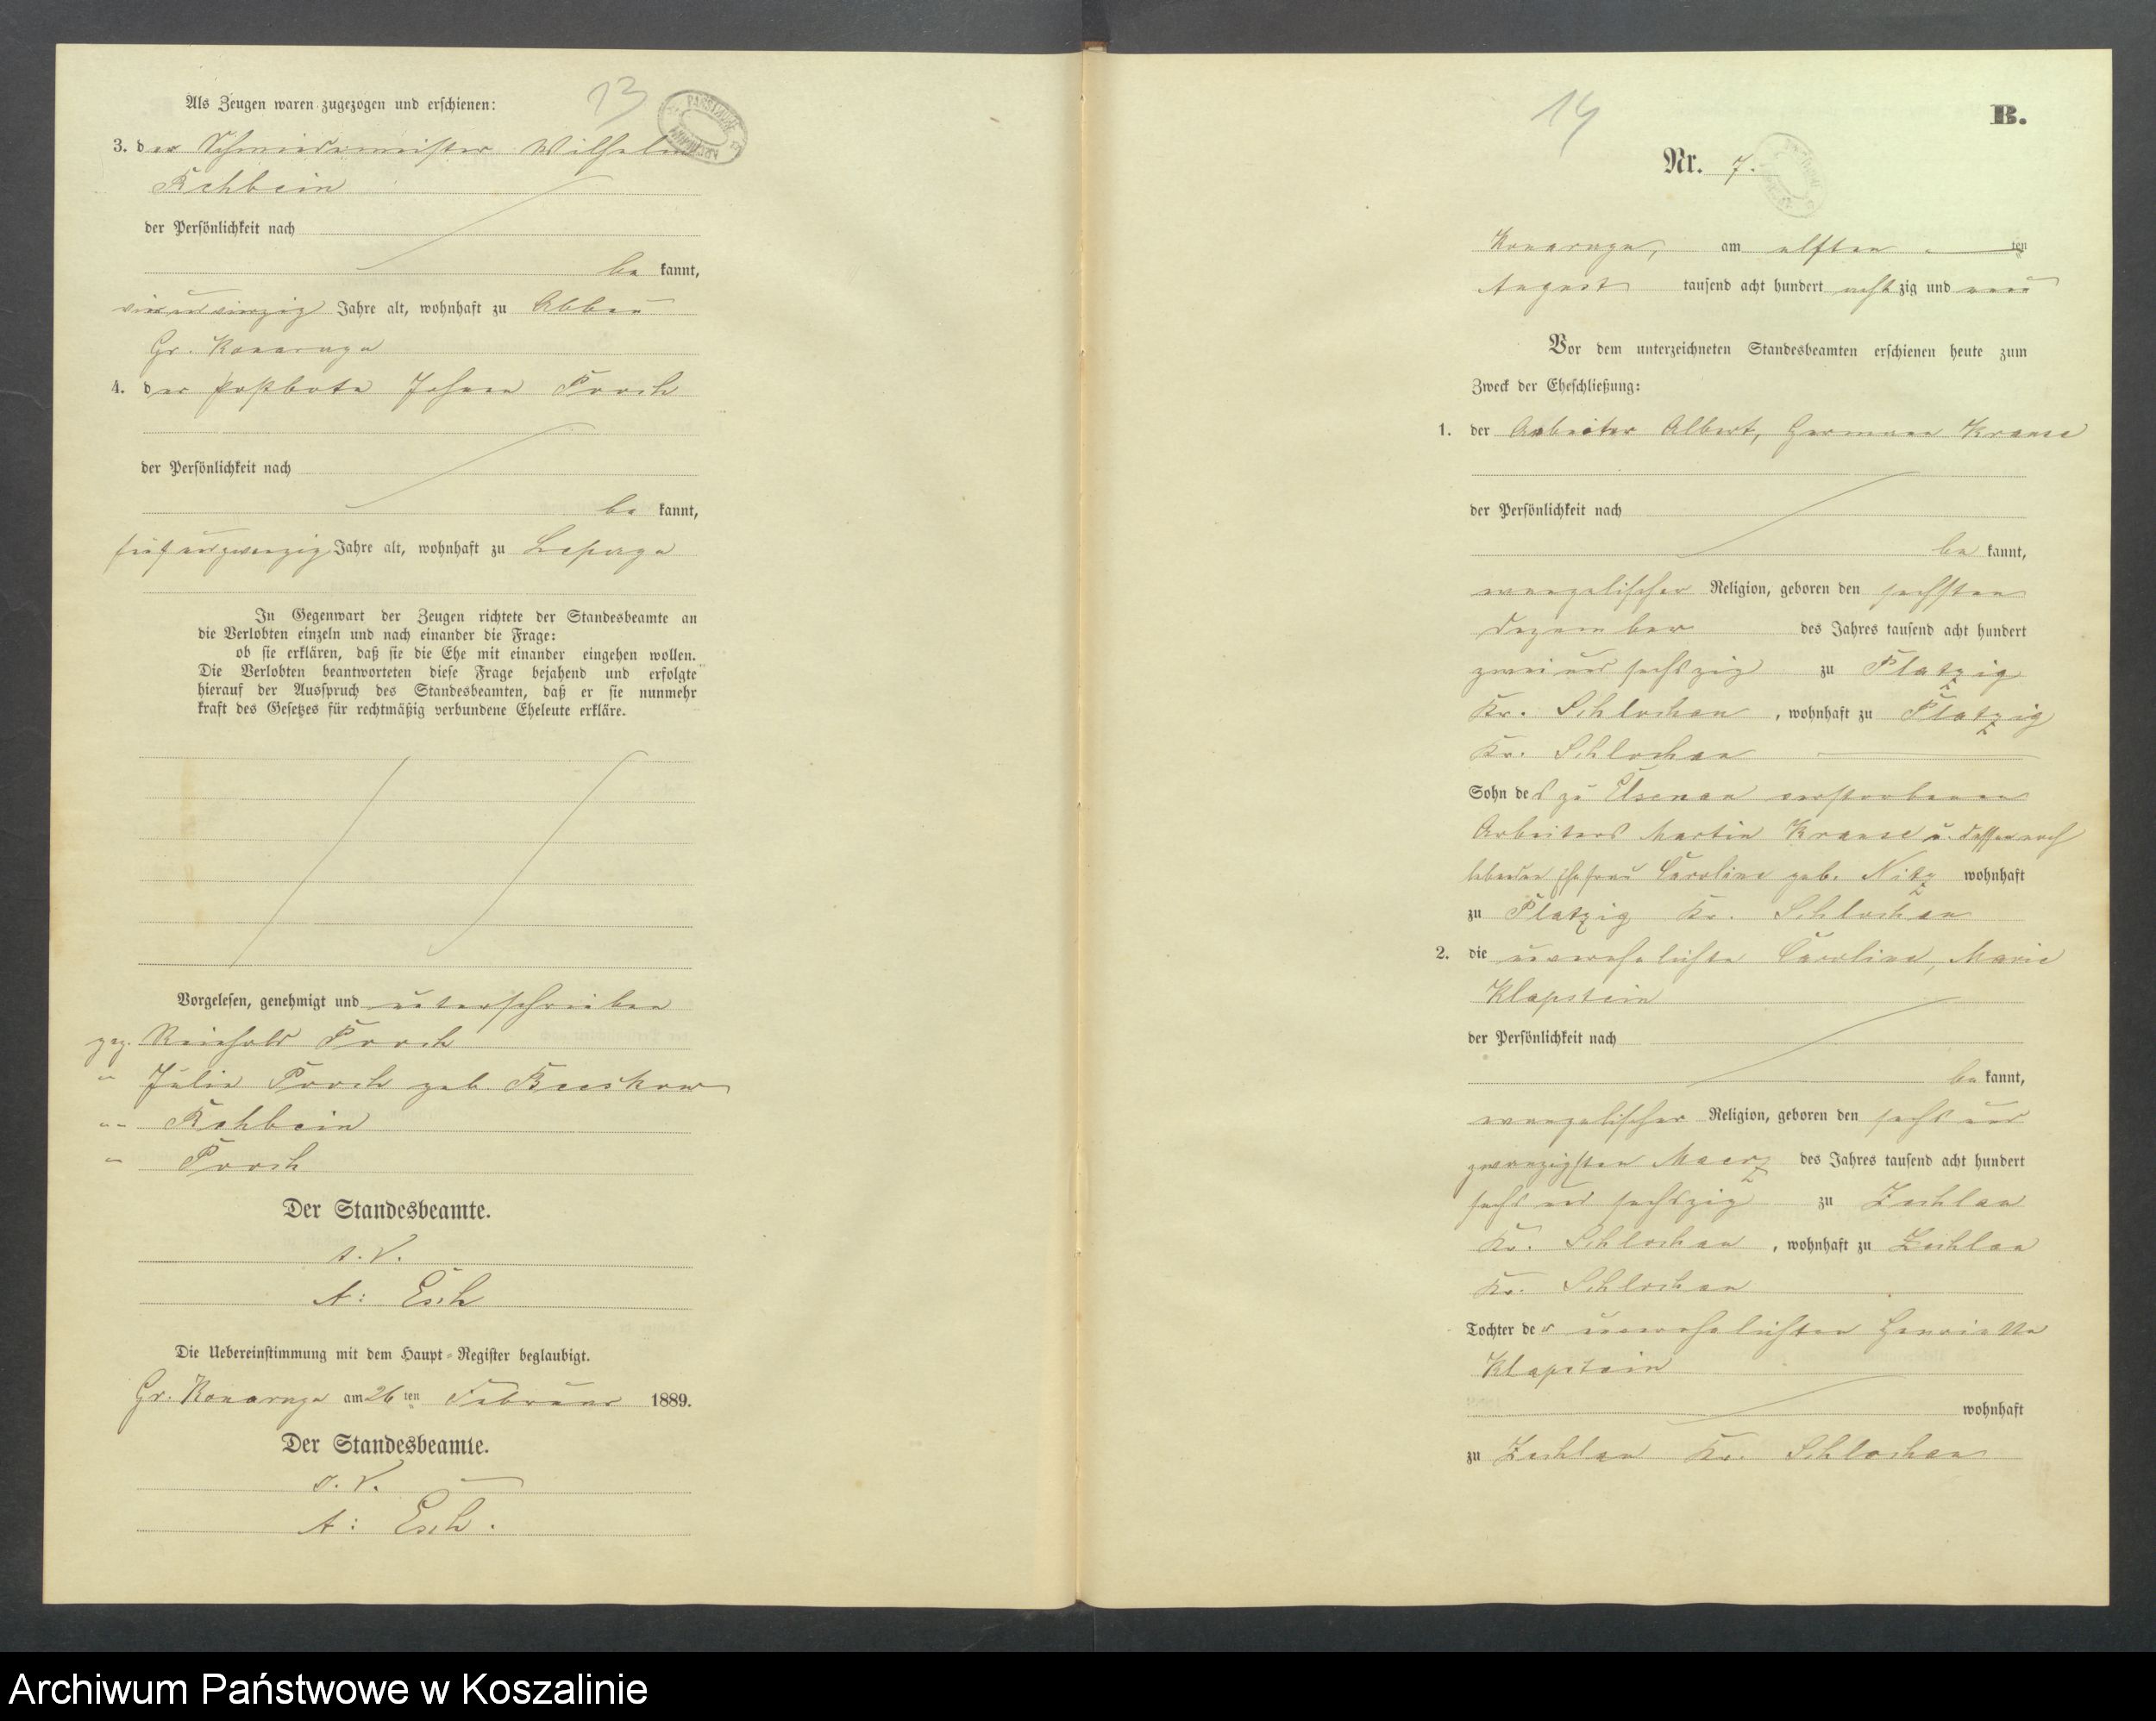 13
Als Zeugen waren zugezogen und erschienen:
3. der Schmiedemeister Wilhelm
Rehbein
der Persönlichkeit nach
be kannt,
vierundvierzig Jahre alt, wohnhaft zu Abbau
Gr. Konarzyn
4. der Postbote Johann Poosh
der Persönlichkeit nach
be kannt,
fünfundzwanzig Jahre alt, wohnhaft zu
In Gegenwart der Zeugen richtete der Standesbeamte an
die Verlobten einzeln und nach einander die Frage:
ob sie erklären, daß sie die Ehe mit einander eingehen wollen.
Die Verlobten beantworteten diese Frage bejahend und erfolgte
hierauf der Ausspruch des Standesbeamten, daß er sie nunmehr
kraft des Gesetzes für rechtmäßig verbundene Eheleute erkläre.
Vorgelesen, genehmigt und unterschrieben
gez. Reinhold Poosh
" Julie Poosh geb.
" Rehbein
" Poosh
Der Standesbeamte.
i. V.
A: Esch
Die Uebereinstimmung mit dem Haupt-Register beglaubigt.
Gr. Konarzyn am 26 ten Februar 1889.
Der Standesbeamte.
i. V.
A: Esch.
14
B.
Nr. 7.
Konarzyn, am elften ten
August tausend acht hundert achtzig und neun
Vor dem unterzeichneten Standesbeamten erschienen heute zum
Zweck der Eheschließung:
1. der Arbeiter Albert, Hermann Krause
der Persönlichkeit nach
be kannt,
evangelischer Religion, geboren den sechsten
Dezember des Jahres tausend acht hundert
zwei und sechszig zu Platzig
Kr. Schlochau, wohnhaft zu Platzig
Kr. Schlochau
Sohn des zu Elsenau verstorbenen
Arbeiters Martin Krause u. dessen noch
lebenden Ehefrau Caroline geb. Nitz wohnhaft
zu Platzig Kr. Schlochau
2. die unverehelichte Caroline, Marie
Klapstein
der Persönlichkeit nach
be kannt,
evangelischer Religion, geboren den sechs und
zwanzigsten Maerz des Jahres tausend acht hundert
sechs und sechszig zu Zechlau
Kr. Schlochau, wohnhaft zu Zechlau
Kr. Schlochau
Tochter der unverehelichten Henriette
Klapstein
wohnhaft
zu Zechlau Kr. Schlochau
Archiwum Państwowe w Koszalinie